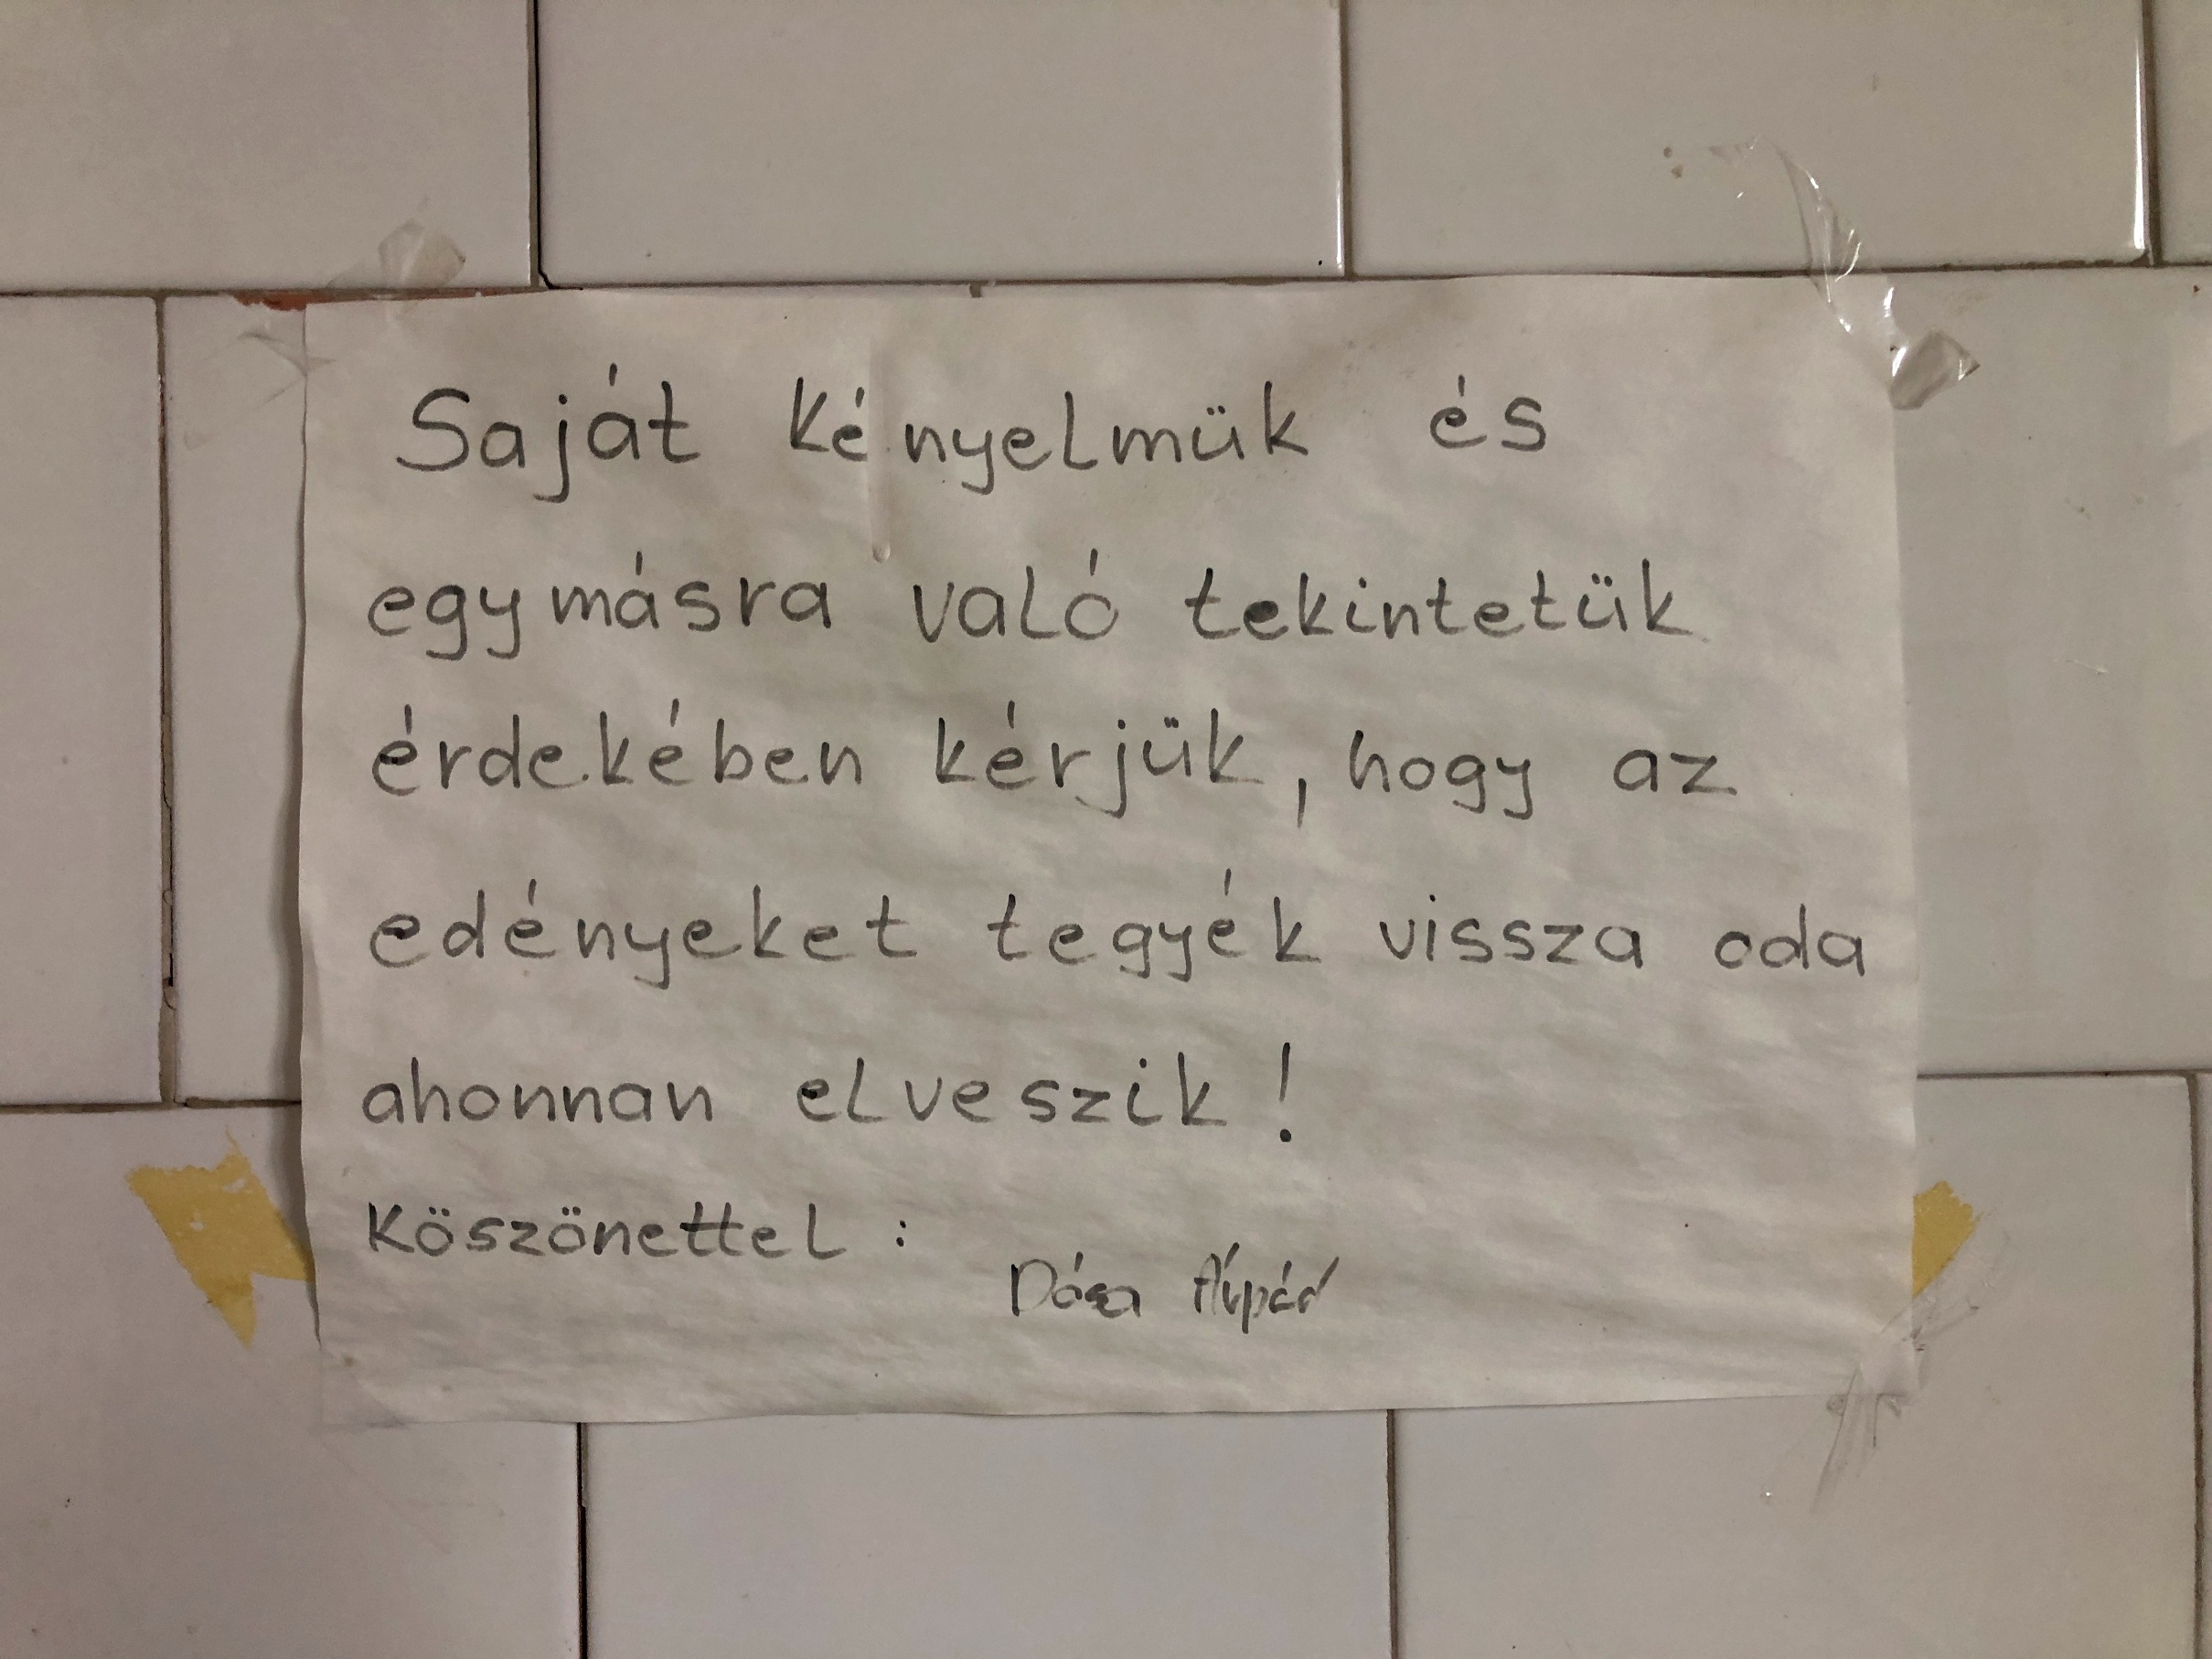 Saját kényelmük és
egymásra való tekintetük
érdekében kérjük, hogy az
edényeket tegyék vissza oda
ahonnan elveszik!
Köszönettel :
Dósa Árpád